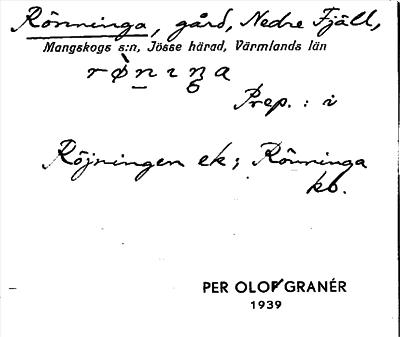 Rönninga, gård, Nedre Fjäll,
Mangskogs s:n, Jösse härad, Värmlands län
rø̀nıŋa
Prep. : i
Röjningen ek; Rönninga
kb.
PER OLOF GRANÉR
1939